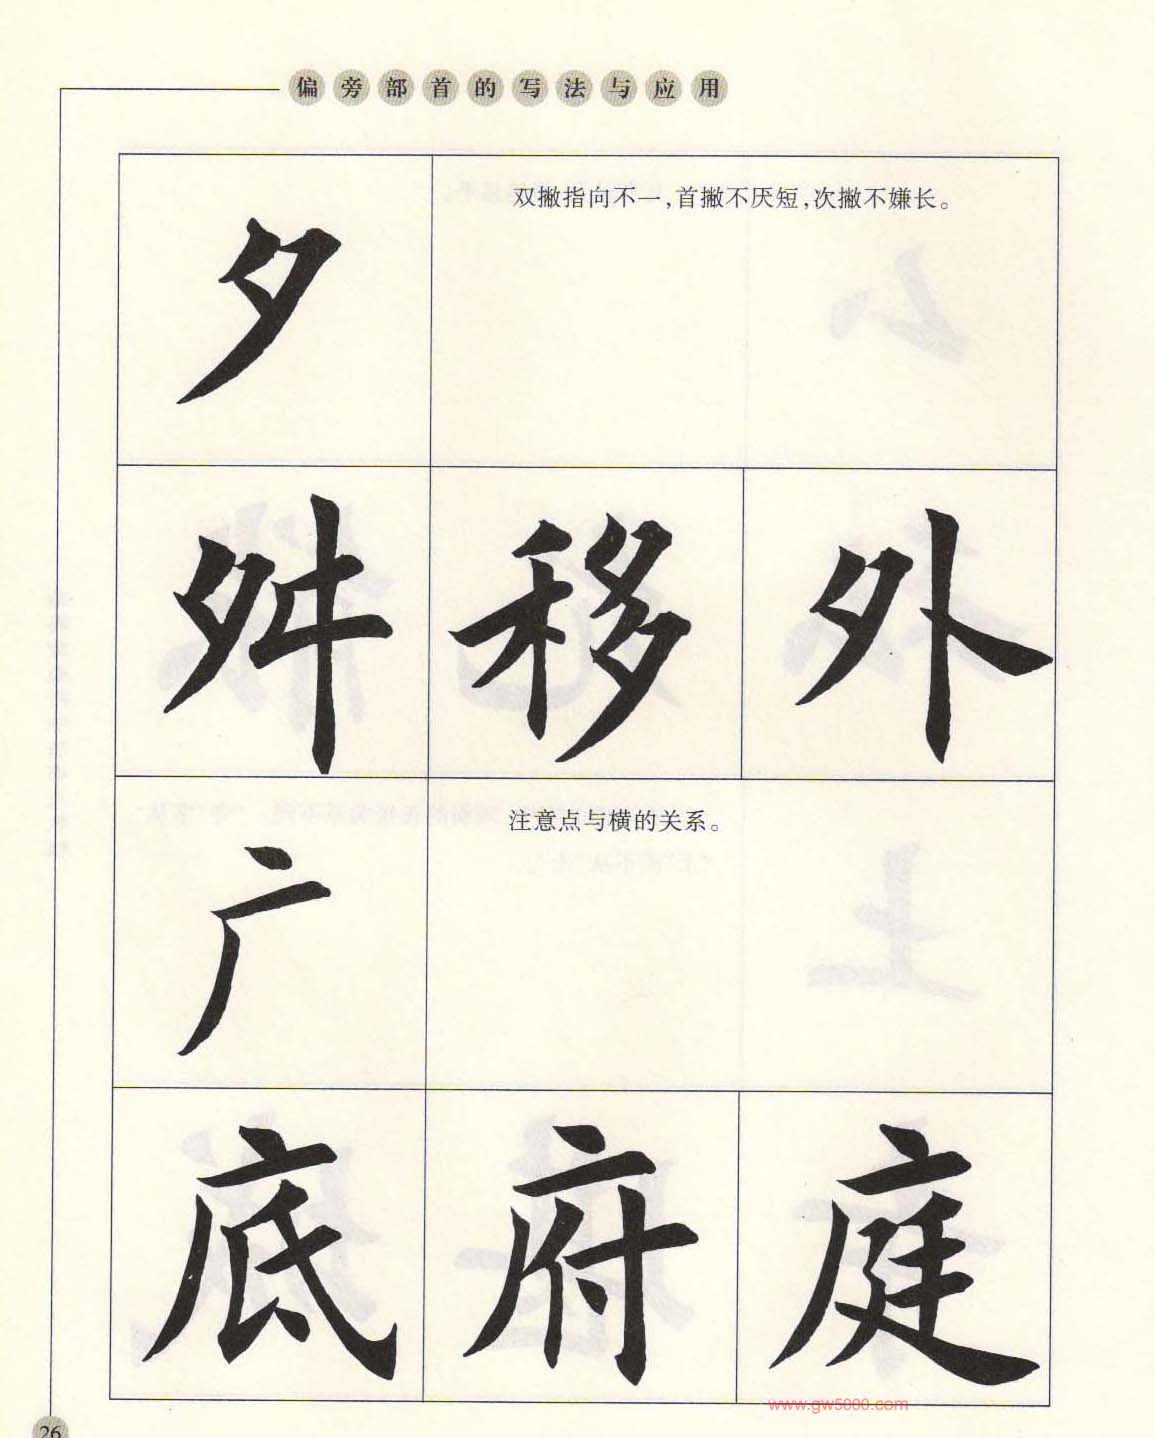 偏旁部首的写法与应用
夕
双撇指向不一,首撇不厌短,次撇不嫌长。
舛 移 外
广
注意点与横的关系。
底 府 庭
www.gw5000.com
26